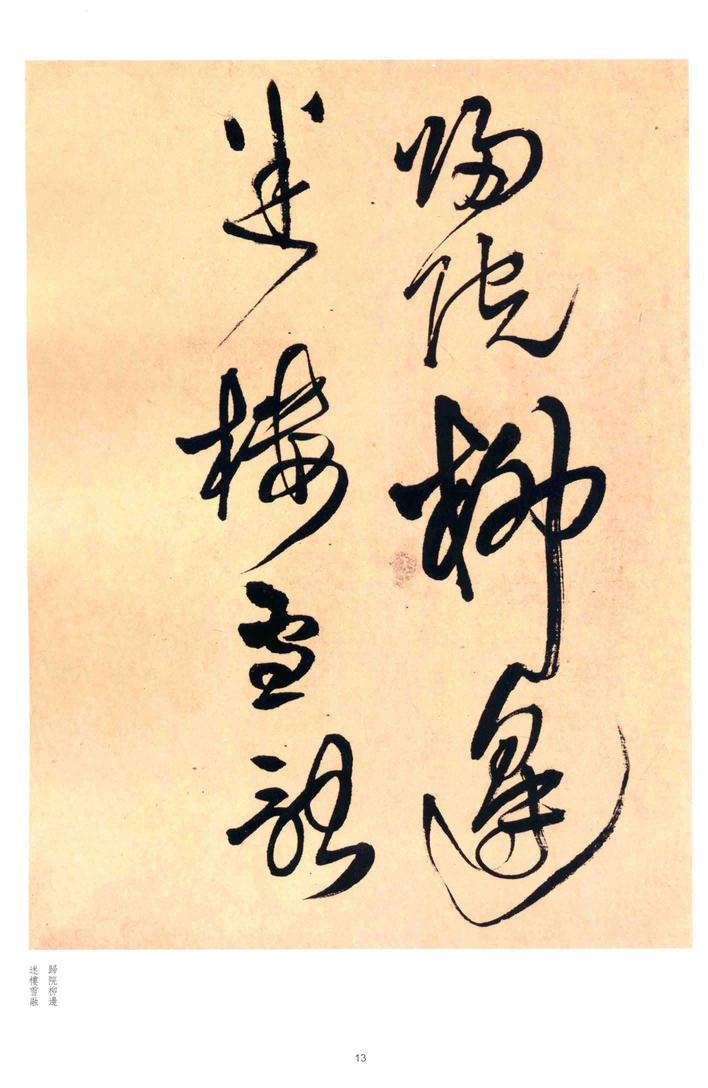 歸院柳邊
迷樓雪融
歸院柳邊
迷樓雪融
13